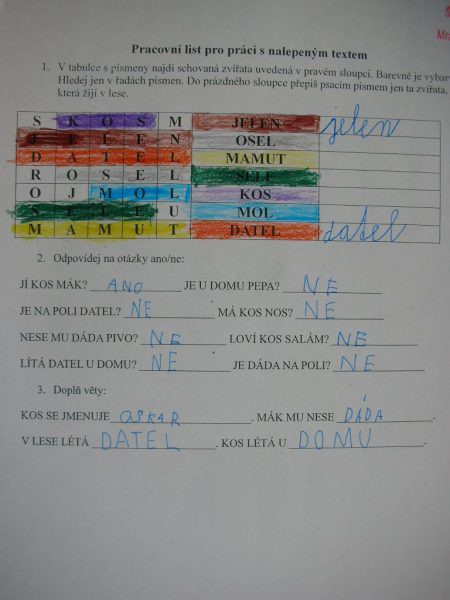 Pracovní list pro práci s nalepeným textem
1. V tabulce s písmeny najdi schovaná zvířata uvedená v pravém sloupci. Barevně je vybar
Hledej jen v řadách písmen. Do prázdného sloupce přepiš psacím písmem jen ta zvířata,
která žijí v lese.
S K O S M JELEN jelen
J E L E N OSEL
D A T E L MAMUT
R O S E L SELE
O J M O L KOS
S E L E U MOL
M A M U T DATEL datel
2. Odpovídej na otázky ano/ne:
JÍ KOS MÁK? ANO JE U DOMU PEPA? NE
JE NA POLI DATEL? NE MÁ KOS NOS? NE
NESE MU DÁDA PIVO? NE LOVÍ KOS SALÁM? NE
LÍTÁ DATEL U DOMU? NE JE DÁDA NA POLI? NE
3. Doplň věty:
KOS SE JMENUJE OSKAR. MÁK MU NESE DÁDA.
V LESE LÉTÁ DATEL. KOS LÉTÁ U DOMU.